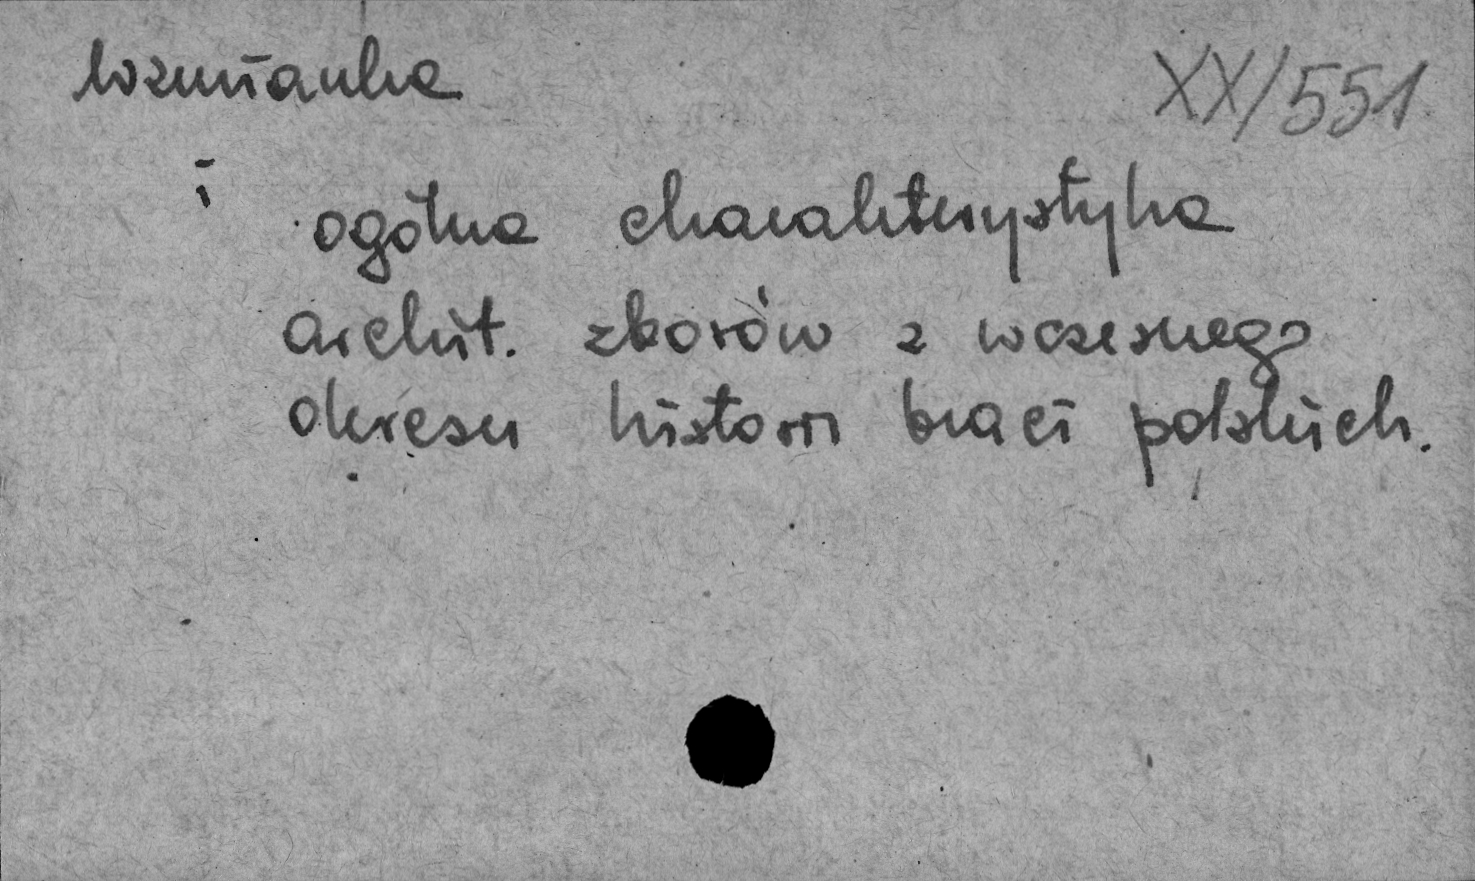 wzmianka
XX/551
i
ogólna charakterystyka
archit. zborów z wczesnego
okresu historii braci polskich.